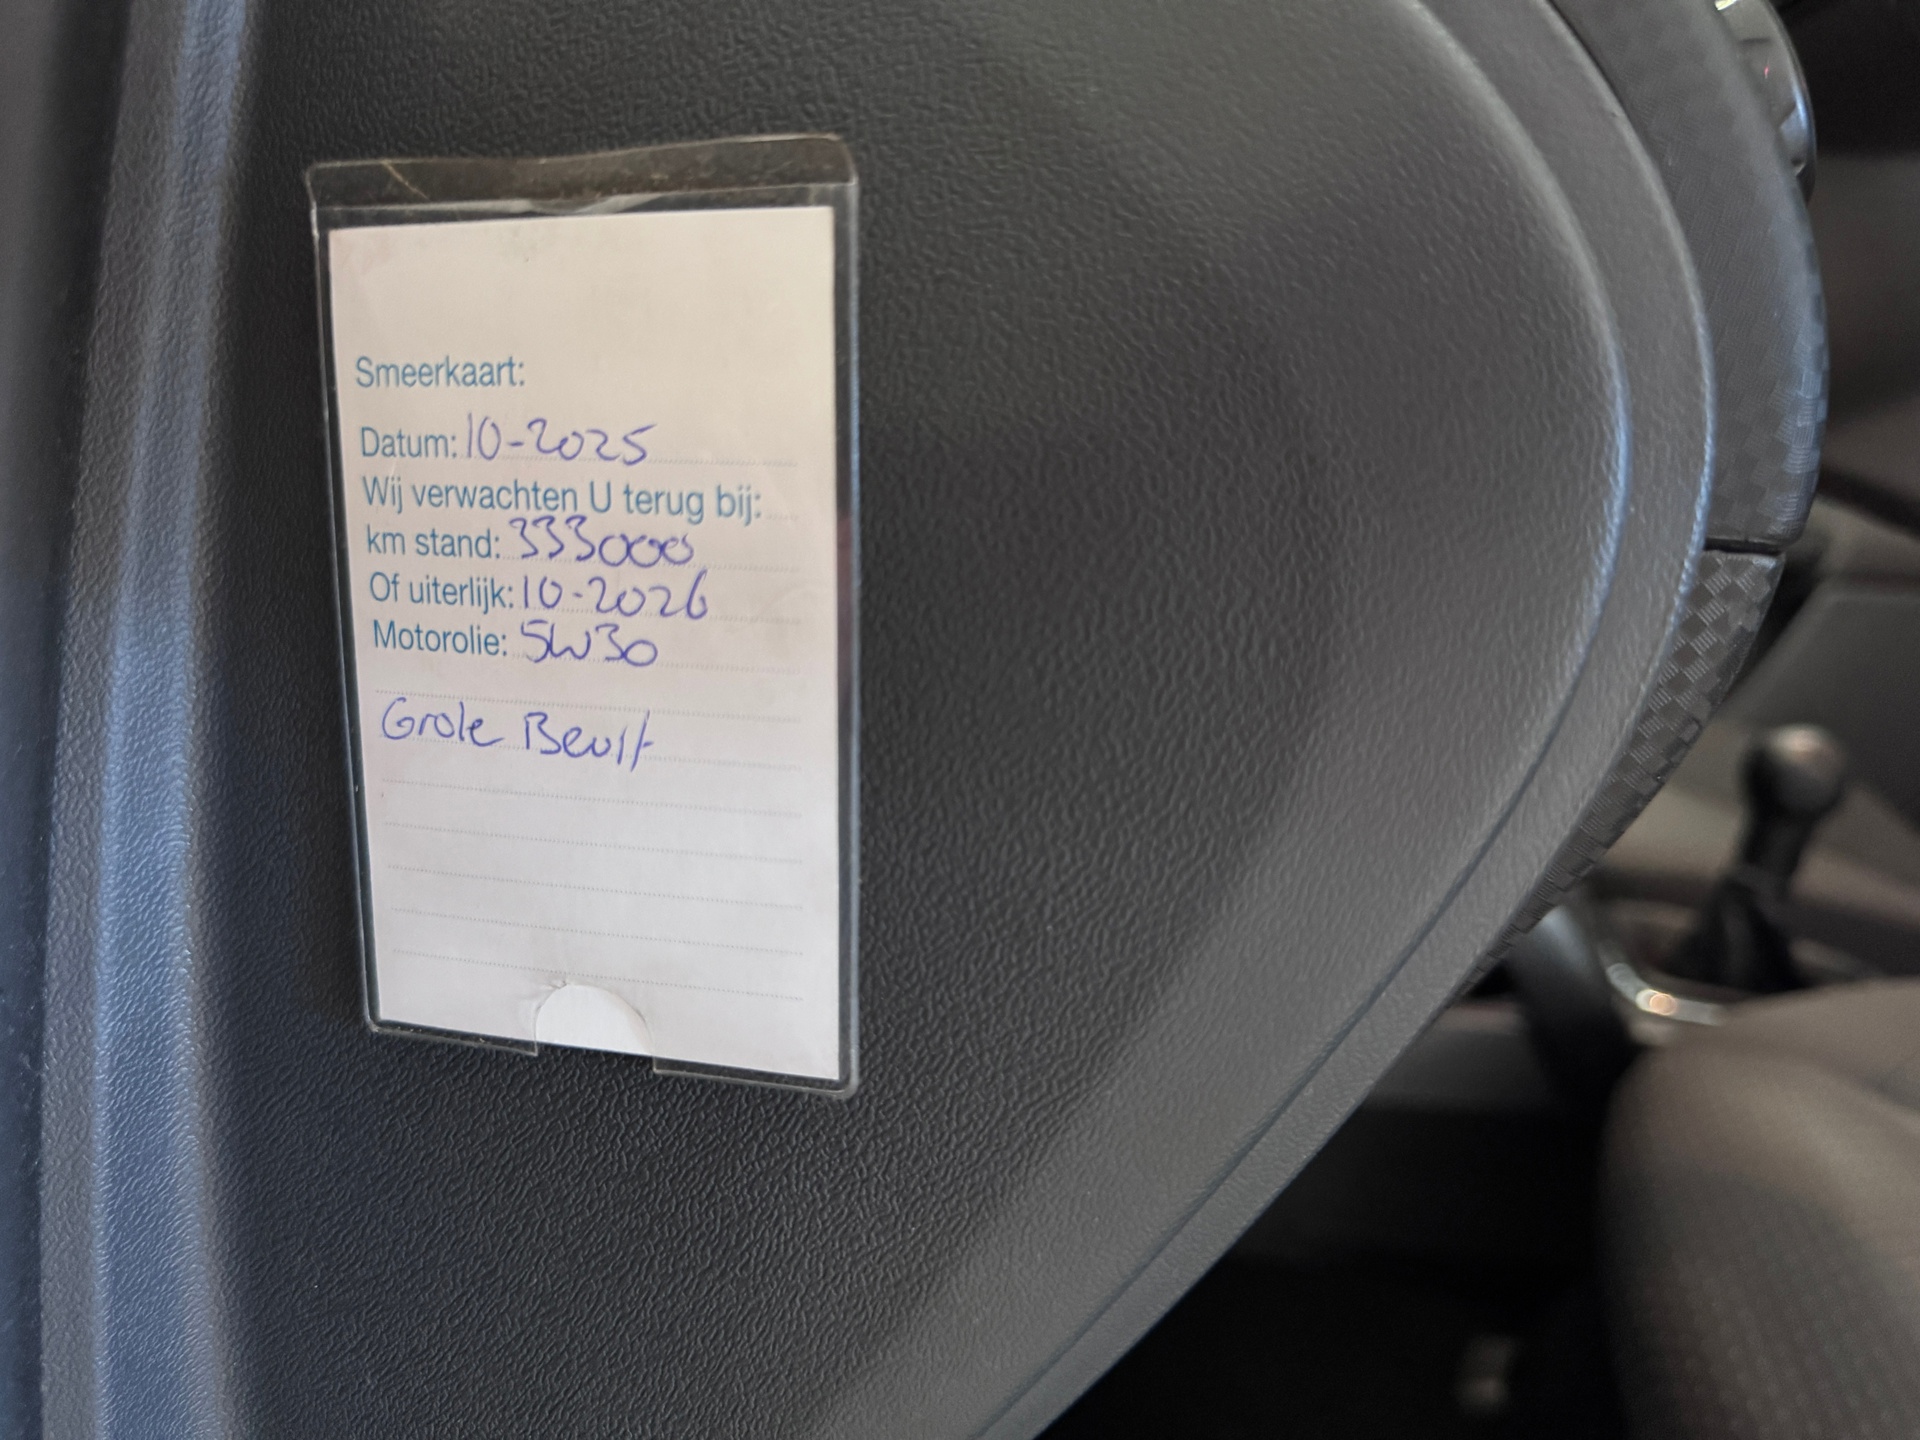 Smeerkaart:
Datum: 10-2025
Wij verwachten U terug bij:
km stand: 333000
Of uiterlijk: 10-2026
Motorolie: 5W30
Grote Beurt